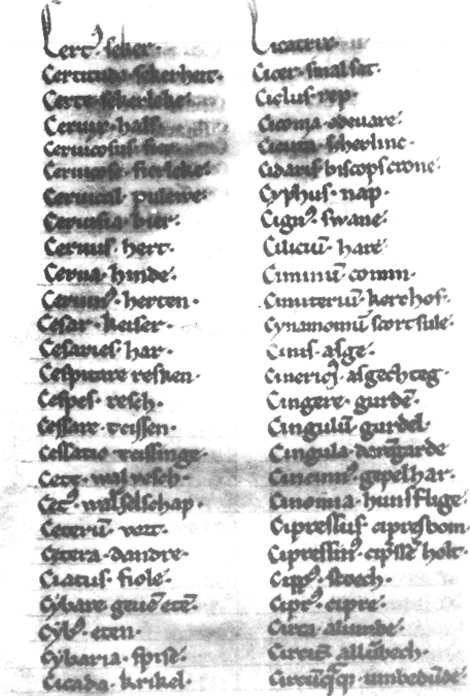 Certꝰ · seker ·
Certitudo · sekerheit ·
Certe · sekerleke ·
Ceruix · hals
Ceruicosus · fier
Ceruicose · fierleke ·
Ceruical · puluwe ·
Ceruisia · bier ·
Ceruus · hert ·
Cerua · hinde ·
Ceruinꝰ · herten ·
Cesar · keiser ·
Cesaries · har ·
Cespitare resken ·
Cespes · resch ·
Cessare · cessen ·
Cessatio · cessinge ·
Cete · wal vesch ·
Cetꝰ · walselschap ·
Ceterū · vort ·
Cetera · dandre ·
Ciatus · fiole ·
Cybare · geuē etē ·
Cybꝰ · eten ·
Cybaria · spise ·
Cicada · krikel ·
Cicatrix ·
Cicer · smal sat ·
Ciclus · rep
Ciconia · odeuare ·
Cicuta · scherlinc ·
Cidaris · biscops crone ·
Cyphus · nap ·
Cignꝰ · swane ·
Ciliciū · hare ·
Ciminū · comin ·
Cimiteriū · kerchof ·
Cynamomū
Cinis · asge ·
asgechteg ·
Cingere · gurdē ·
Cingulū · gurdel ·
Cingula · daregarde
Cincinnꝰ · gepelhar ·
Cinomia · hunsfliige ·
Cipressus · cipresbom ·
Cipressinꝰ · cipssē holt ·
Cippꝰ · stoech ·
Ciprꝰ · cipre ·
Circa · alumbe ·
allūbech ·
umbedūde ·